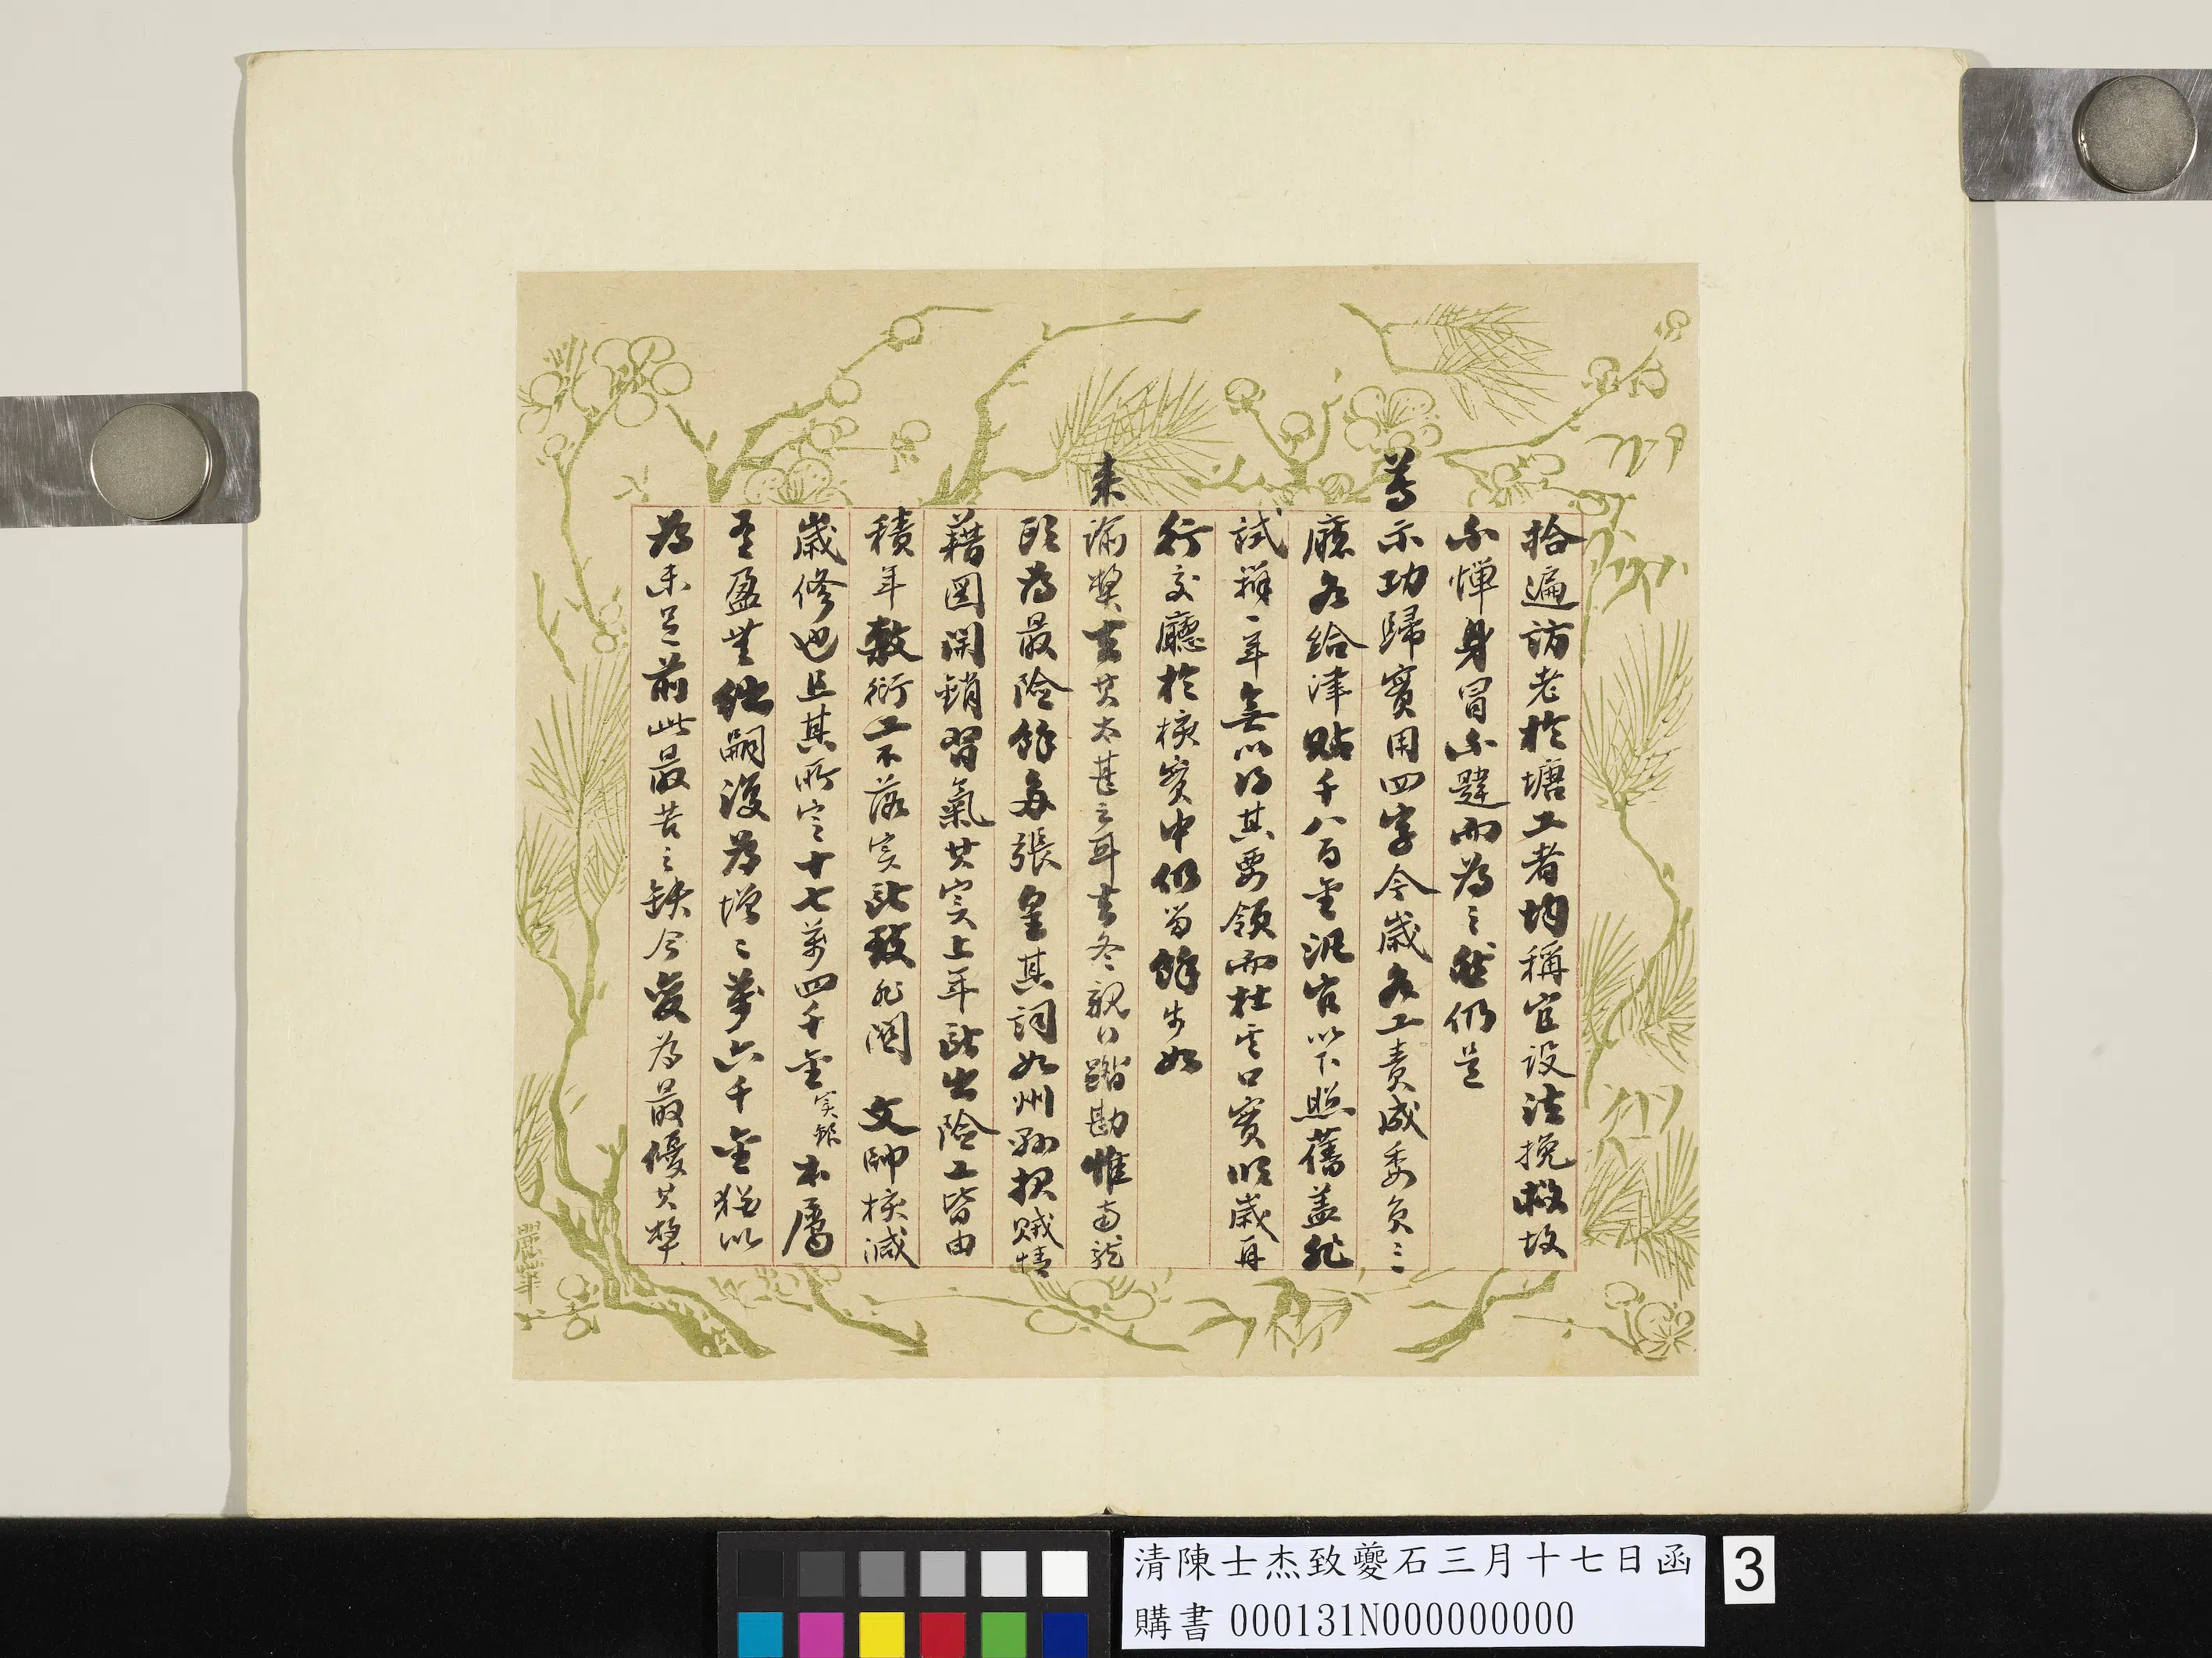 拾遍訪老於塘工者均稱宜設法挽救故
不憚身冒不韙而為之然仍是
尊示功歸實用四字今歲各工責成委員三
廳各給津貼千八百金汛官以下照舊蓋非
試辦一年無以得其要領而杜其口實明歲再
行交廳於核實中仍留餘步如
來諭弊去其太甚云耳去冬親行踏勘惟
段為最險餘每張皇其詞如州縣報賊情
藉圖開銷習氣其實上年所出險工皆由
積年敷衍工不落實所致非關 文帥核減
歲修也且其所定十七萬四千金實銀本屬
有盈無絀嗣復為增二萬六千金猶以
為未足前此最苦之缺今變為最優其弊
清陳士杰致夔石三月十七日函
購書 000131N000000000
3